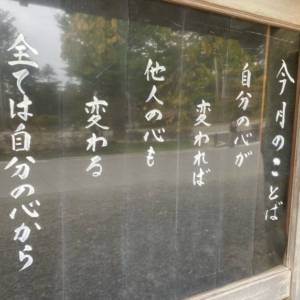 今月のことば
自分の心が
変われば
他人の心も
変わる
全ては自分の心から